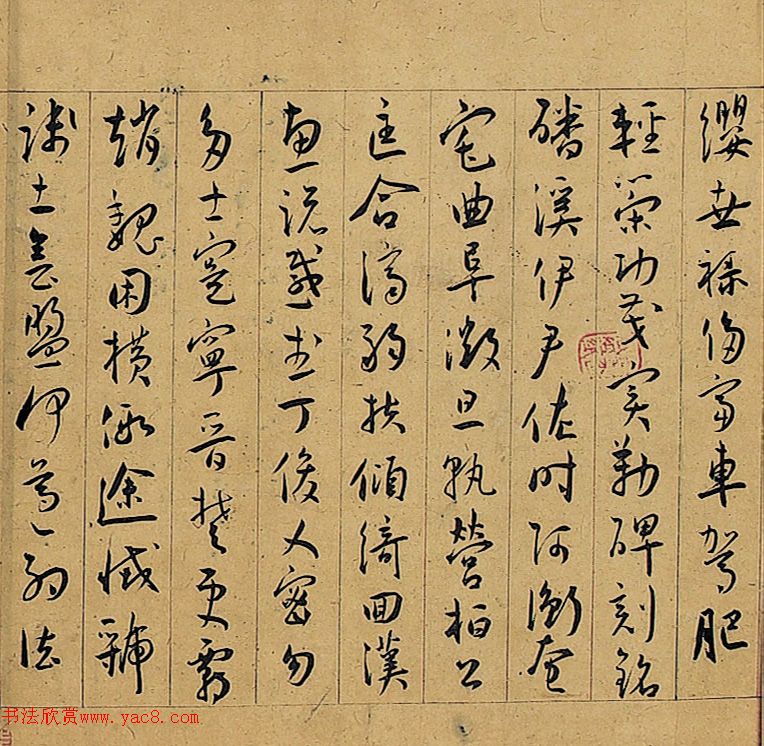 纓世祿侈富車駕肥
輕策功茂實勒碑刻銘
磻溪伊尹佐時阿衡奄
宅曲阜微旦孰營桓公
匡合濟弱扶傾綺回漢
惠說感武丁俊乂密勿
多士寔寧晉楚更霸
趙魏困橫假途滅虢
踐土會盟何遵約法
书法欣赏www.yac8.com